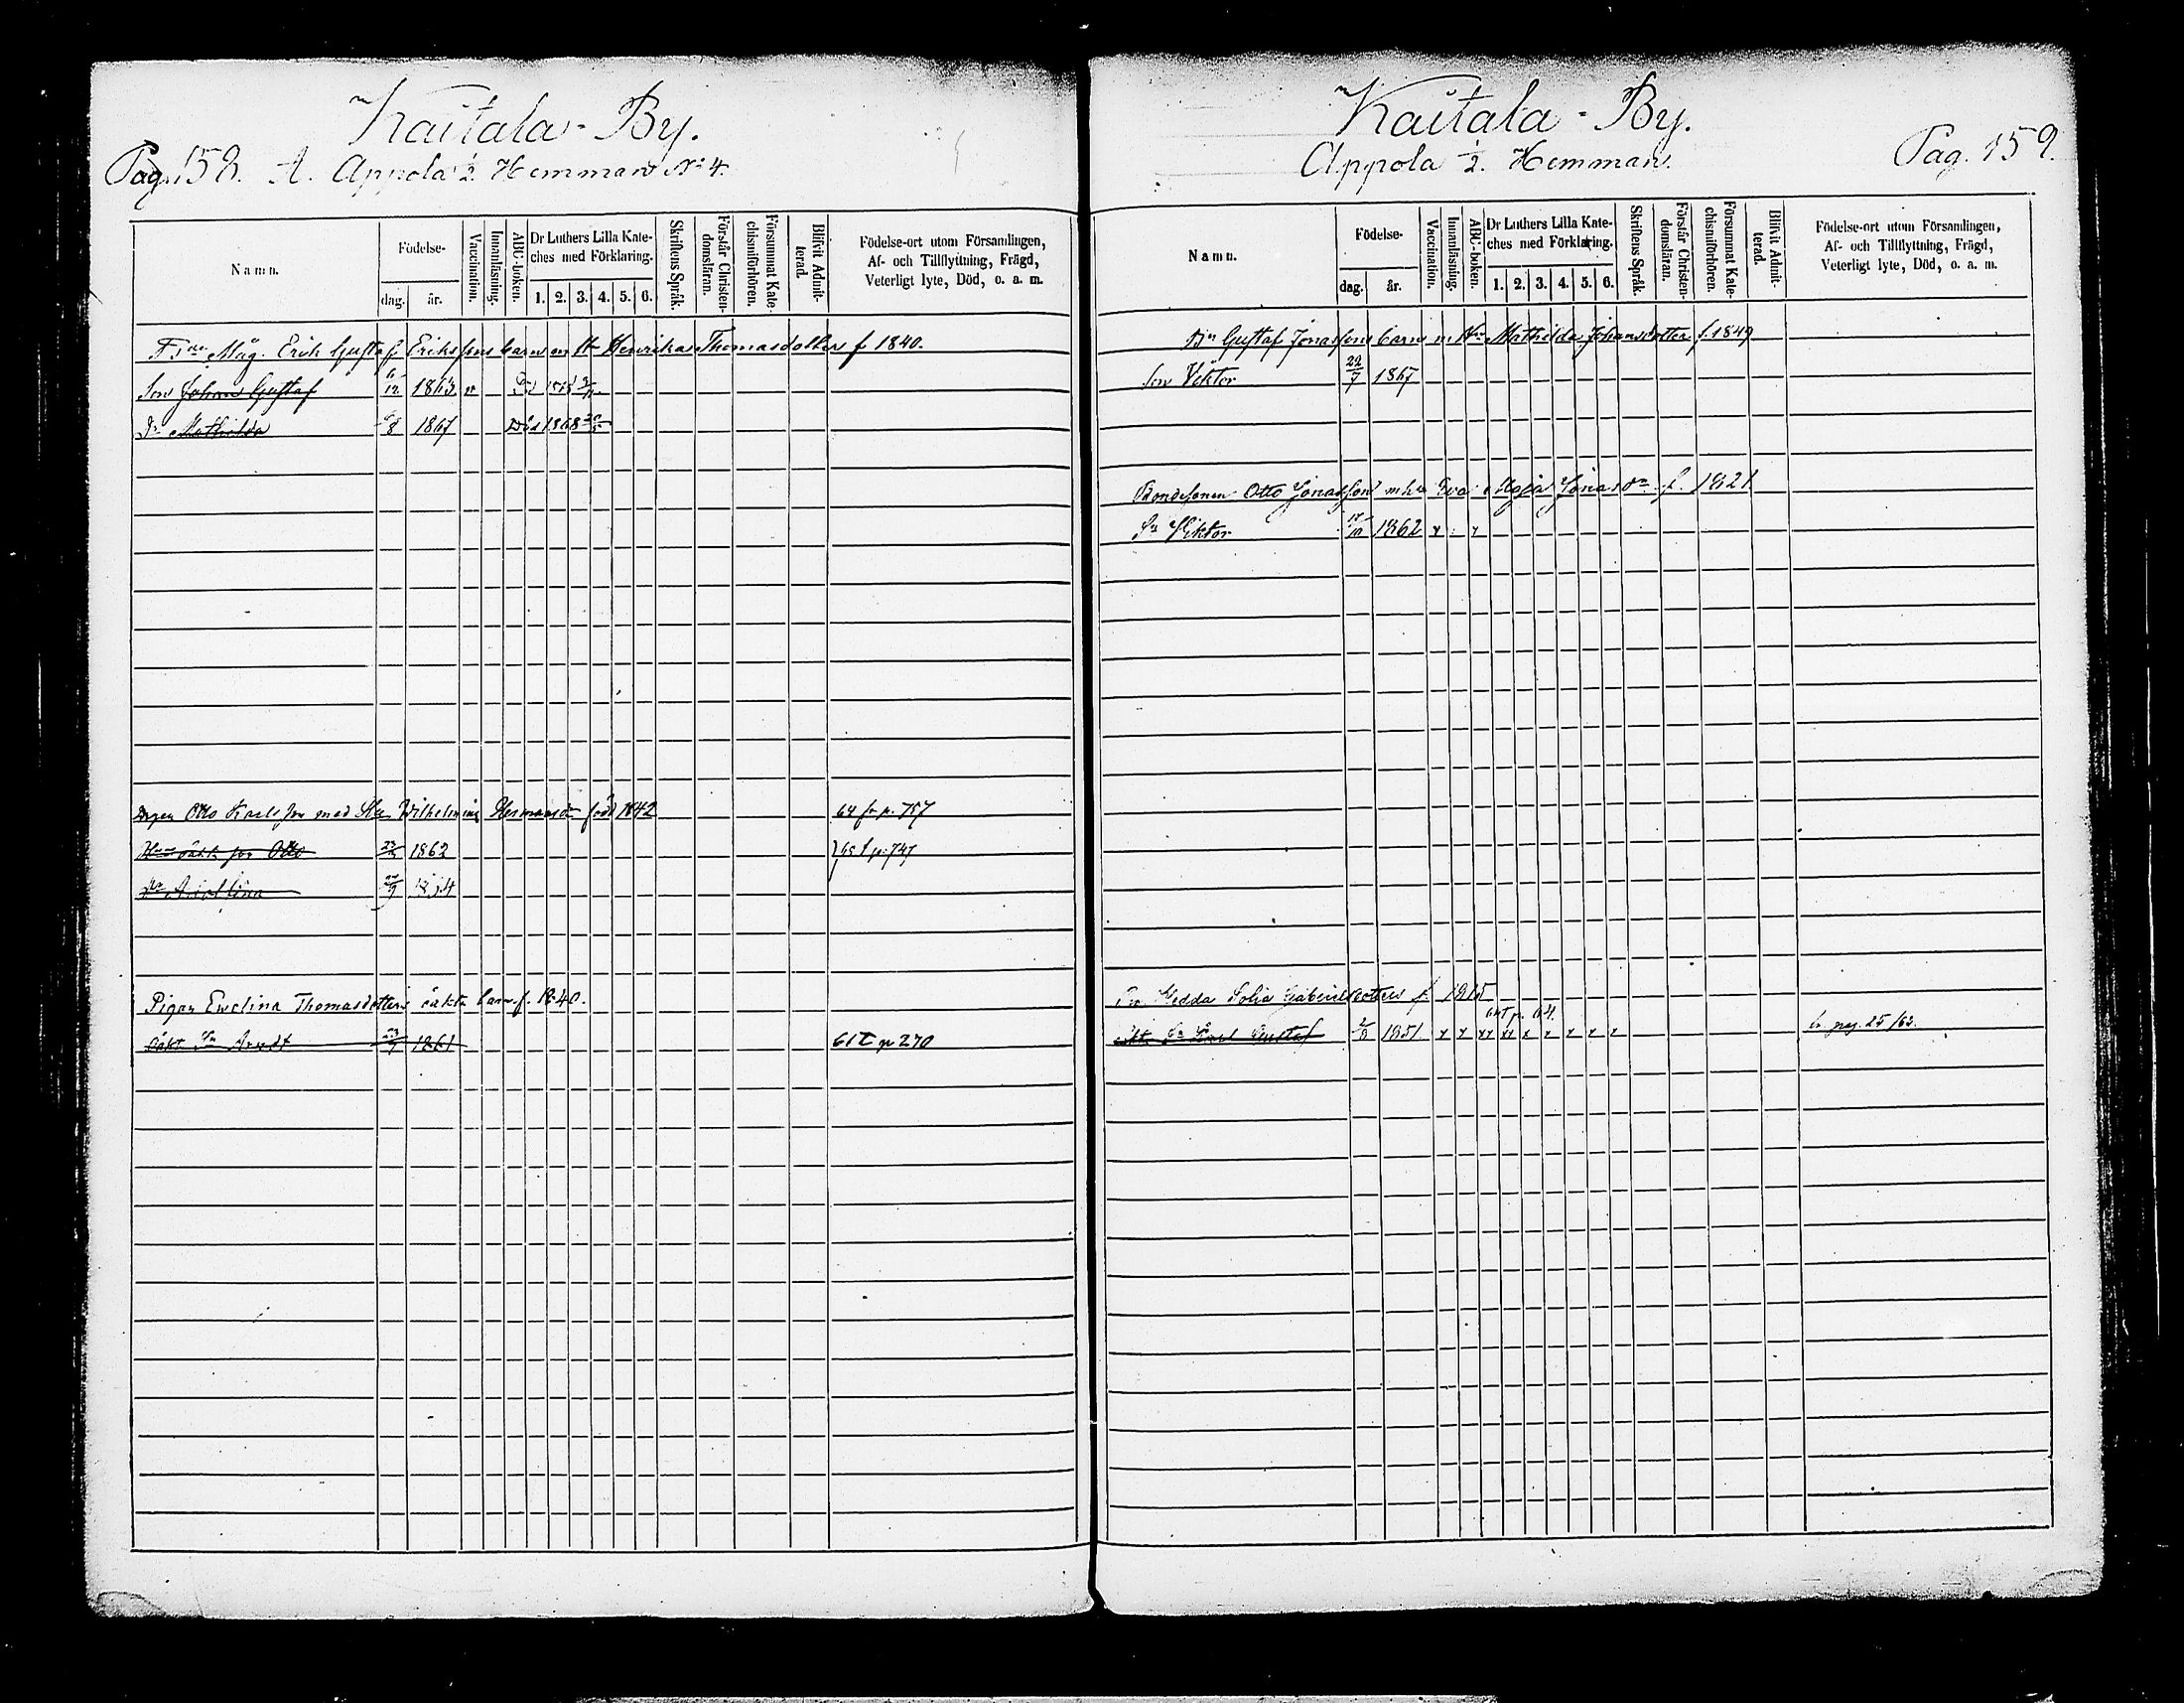 Kaitala - By.
Pag. 158. A. Appola 1/2. Hemman N:o 4.
Namn.
Födelse-
dag. år.
Vaccination.
Innanläsning.
ABC-boken.
Dr Luthers Lilla Kate-
ches med Förklaring.
1. 2. 3. 4. 5. 6.
Skriftens Språk.
Förstår Christen-
domsläran.
Försummat Kate-
chismiförhören.
Blifvit Admit-
terad.
Födelse-ort utom Församlingen,
Af- och Tillflyttning, Frägd,
Veterligt lyte, Död, o. a. m.
Måg. Erik Gustaf Erikssons barn m H Henrika Thomasdotter f 1840.
Son Johan Gustaf 6/12 1863
Dr Mathilda 8 1867 Död 1868 20/5
Otto Karlsson med Hu Wilhelmina Hermansdr född 1842 64 fr p. 757
Otto 1862 65 t p. 747
9
Pigan Evelina Thomasdotters oäkta barn f. 1840.
oäkt Sn 1861 61 T p 270
Kaitala - By.
Appola 1/2. Hemman.
Pag. 159.
Namn.
Födelse-
dag. år.
Vaccination.
Innanläsning.
ABC-boken.
Dr Luthers Lilla Kate-
ches med Förklaring.
1. 2. 3. 4. 5. 6.
Skriftens Språk.
Förstår Christen-
domsläran.
Försummat Kate-
chismiförhören.
Blifvit Admit-
terad.
Födelse-ort utom Församlingen,
Af- och Tillflyttning, Frägd,
Veterligt lyte, Död, o. a. m.
Gustaf Jonassons barn m Hu Mathilda Johansdotter f. 1849
Son Viktor 22/7 1867
Bondesonen Otto Jonasson m hu Eva Jonasdr f. 1821
Sn Viktor 17/10 1862 x x
Hedda Sofia Gabrielsdotters f. 1815
64 T p. 64.
Sn Karl Gustaf 2/8 1851 x x xx xx x x x x x pag. 25 /63.